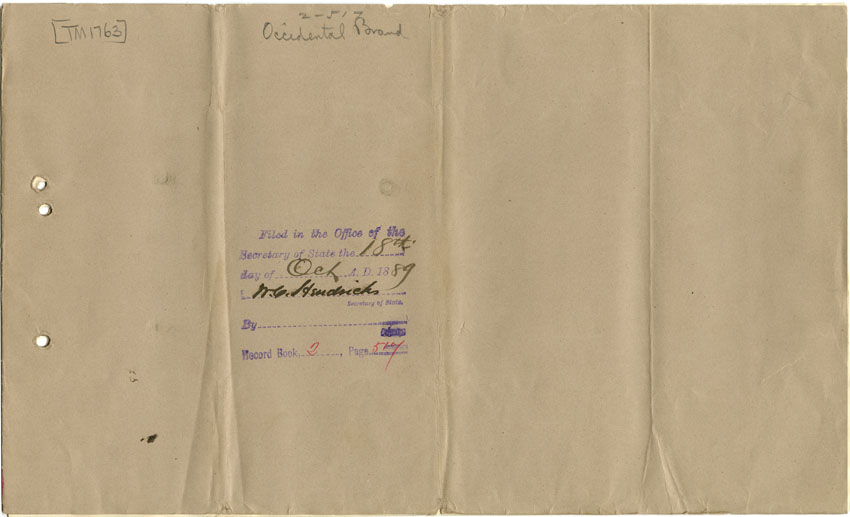 [TM1763]
2-517
Occidental Brand
Filed in the Office of the
Secretary of State the 18th
day of Oct A.D. 1889
W.C. Hendricks
Secretary of State.
By
Record Book 2, Page